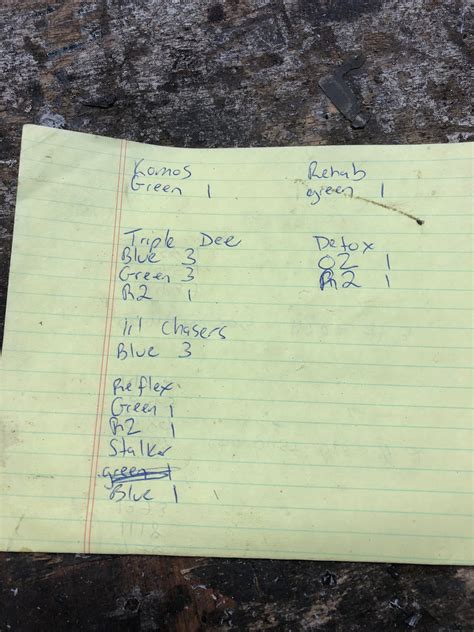 Komos
Green 1
Triple Dee
Blue 3
Green 3
R2 1
lil Chasers
Blue 3
Reflex
Green 1
R2 1
Stalker
green 1
Blue 1
Rehab
green 1
Detox
O2 1
R2 1